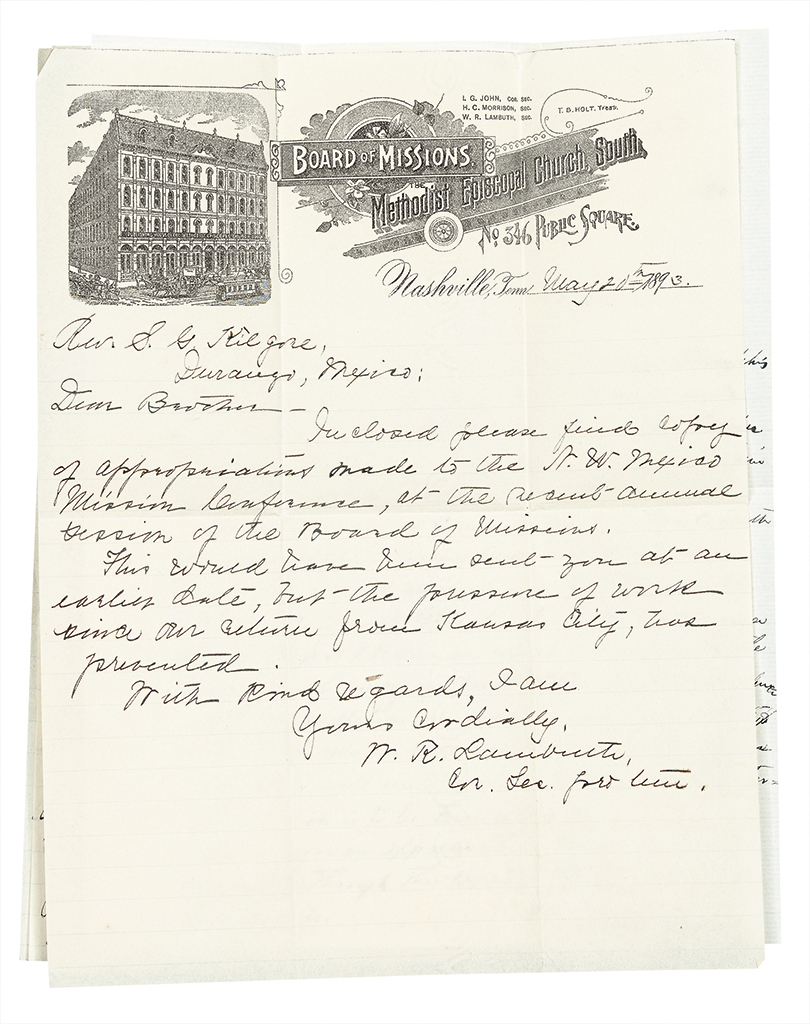 I. G. JOHN, COR. SEC.
H. C. MORRISON, SEC.
W. R. LAMBUTH, SEC.
T. B. HOLT, Treas.
BOARD OF MISSIONS
Methodist Episcopal Church, South,
No. 346 PUBLIC SQUARE.
Nashville, Tenn. May 20th 1893.
Rev. S. G. Kilgore,
Durango, Mexico:
Dear Brother —
Inclosed please find copy
of appropriations made to the N. W. Mexico
Mission Conference, at the recent annual
session of the Board of Missions.
This would have been sent you at an
earlier date, but the pressure of work
since our return from Kansas City, has
prevented.
With kind regards, I am
Yours Cordially,
W. R. Lambuth,
Cor. Sec. pro tem.